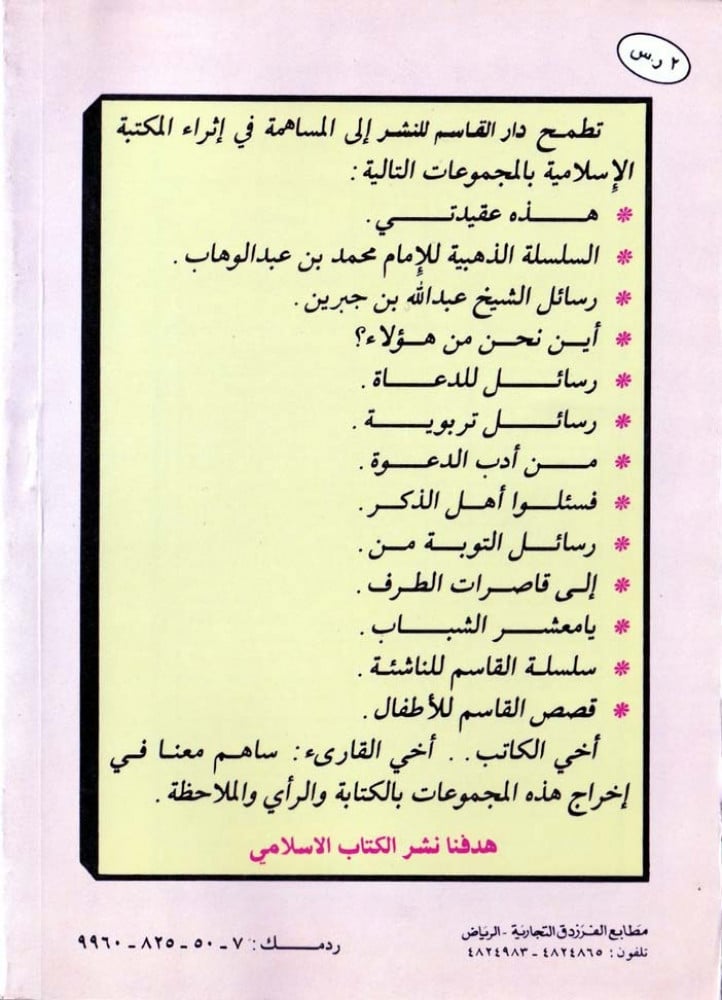 ٢ ر.س
تطمح دار القاسم للنشر إلى المساهمة في إثراء المكتبة
الإسلامية بالمجموعات التالية :
* هذه عقيدتي .
* السلسلة الذهبية للإمام محمد بن عبدالوهاب .
* رسائل الشيخ عبدالله بن جبرين .
* أين نحن من هؤلاء؟
* رسائل للدعاة .
* رسائل تربوية .
* من أدب الدعوة .
* فسئلوا أهل الذكر .
* رسائل التوبة من .
* إلى قاصرات الطرف .
* يامعشر الشباب .
* سلسلة القاسم للناشئة .
* قصص القاسم للأطفال .
أخي الكاتب . . أخي القارىء : ساهم معنا في
إخراج هذه المجموعات بالكتابة والرأي والملاحظة .
هدفنا نشر الكتاب الاسلامي
مطابع الفرزدق التجارية - الرياض
تلفون : ٤٨٢٤٨٦٥ - ٤٨٢٤٩٨٣
ردمك : ٧ - ٥٠ - ٨٢٥ - ٩٩٦٠